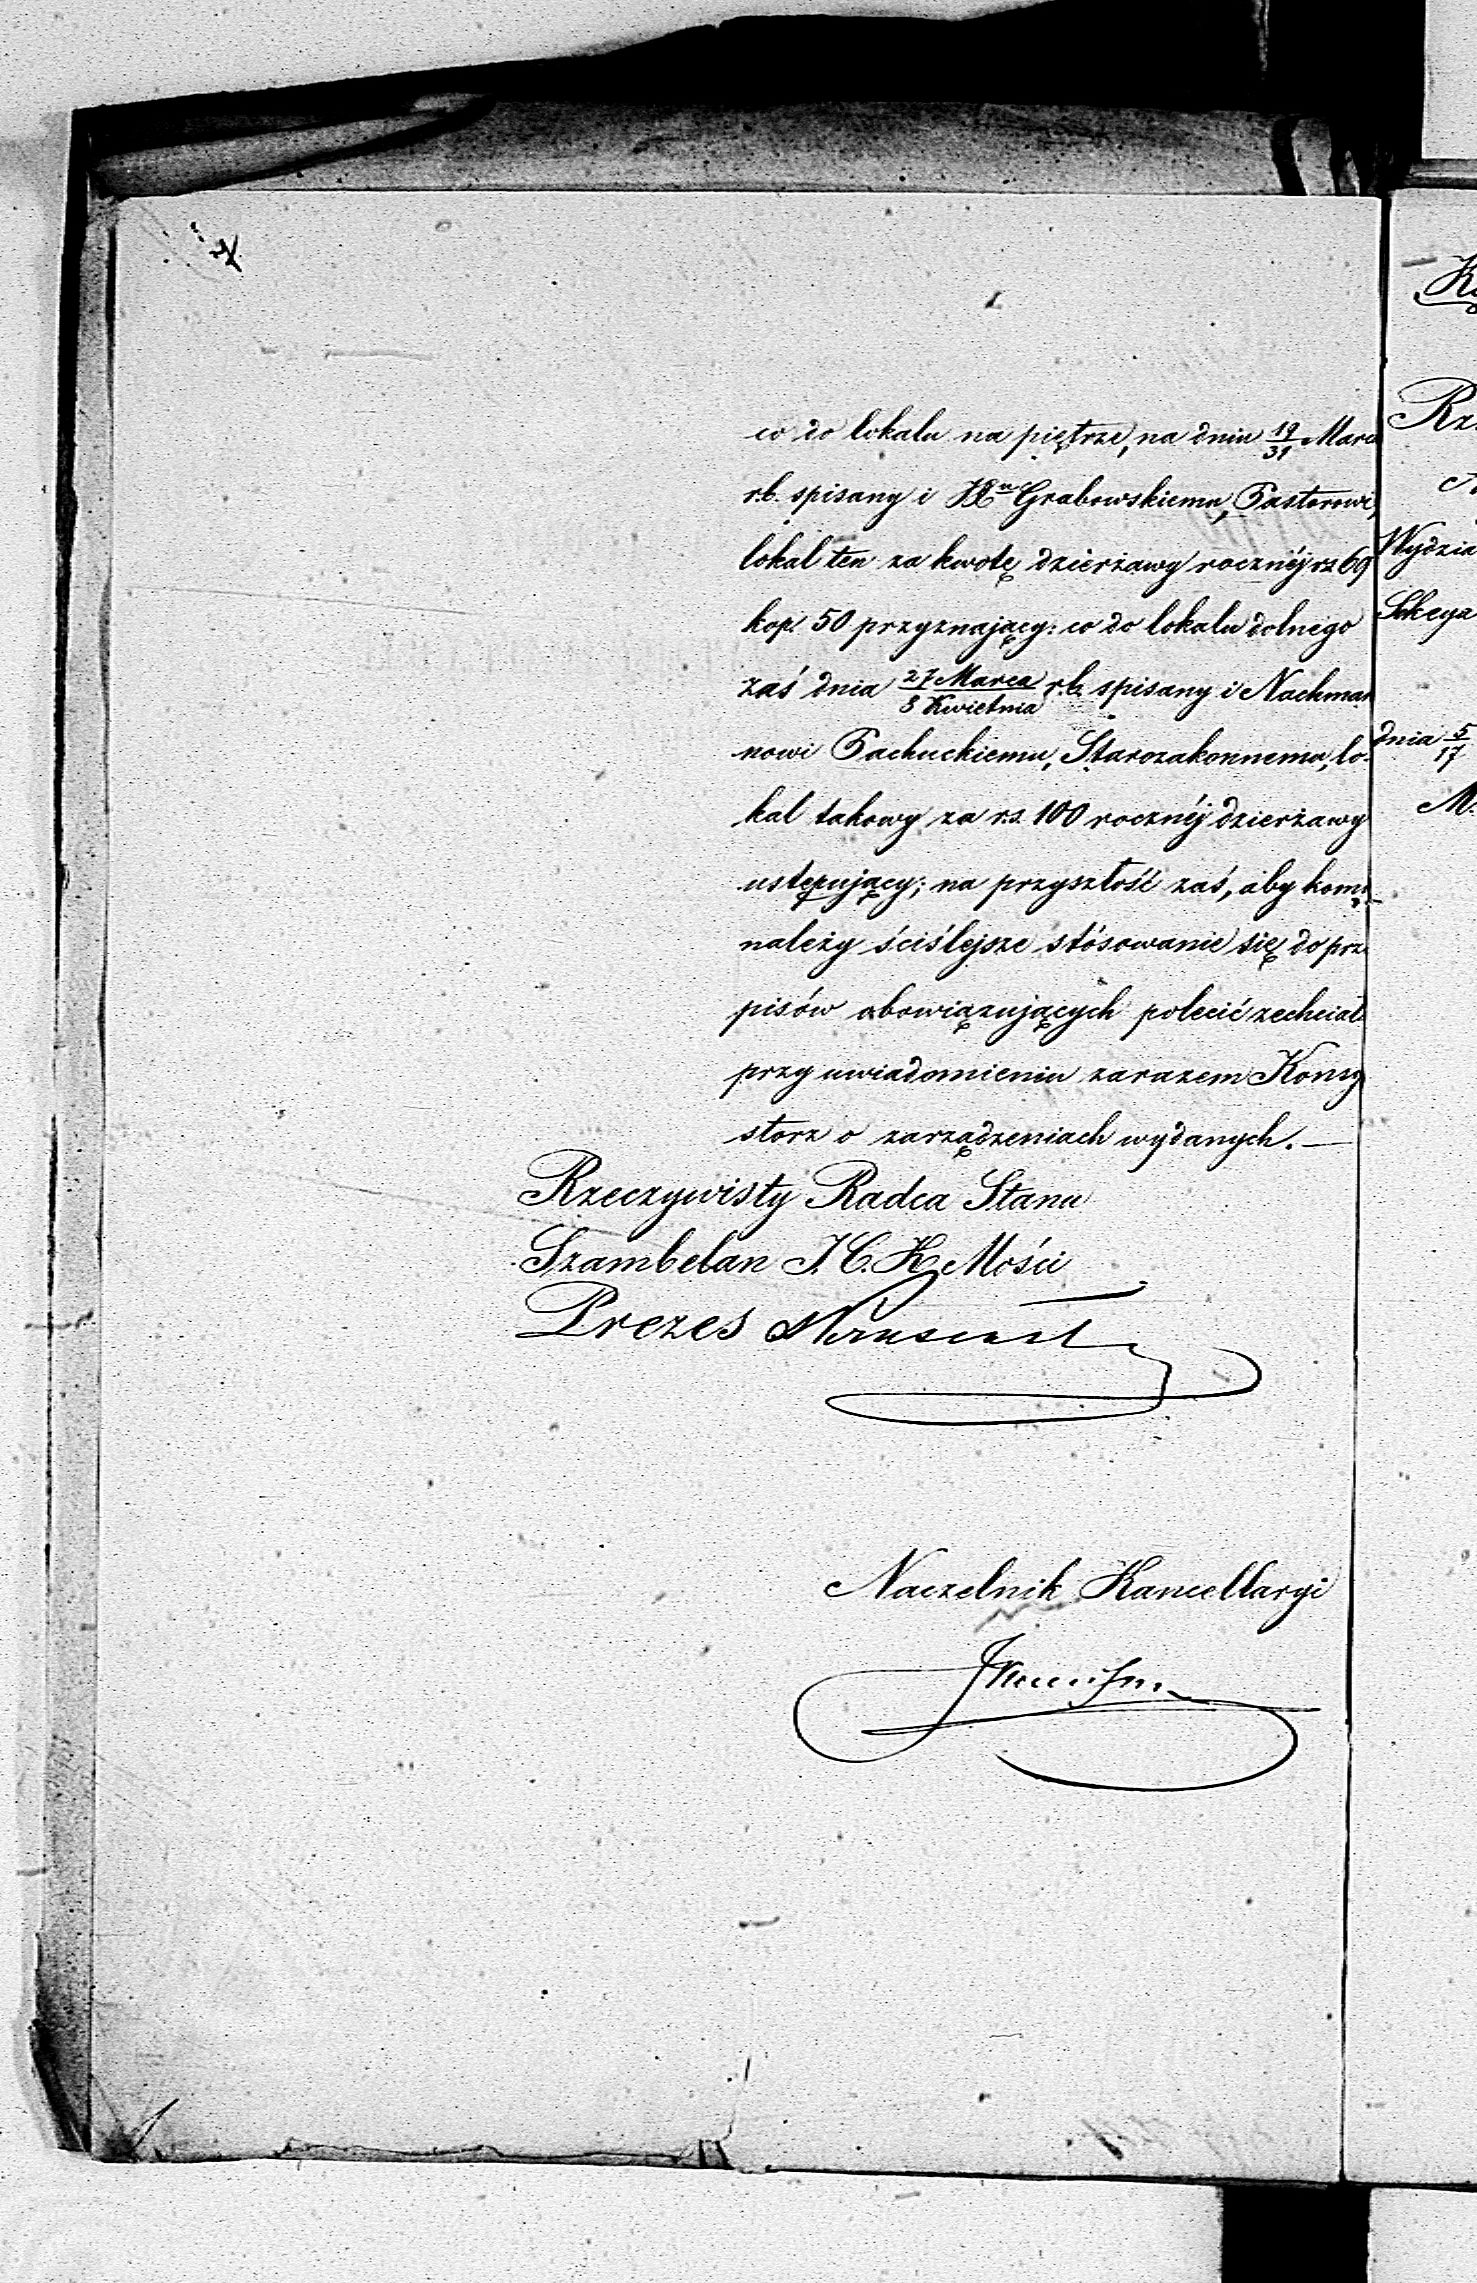 co do lokalu na piętrze, na dniu 19/31 Marca
r.b. spisany i Grabowskiemu, Pastorowi,
lokal ten za kwotę dzierżawy rocznéj rs 69
kop. 50 przyznający: co do lokalu dolnego
zaś dnia 27 Marca/8 Kwietnia r.b. spisany i Nachma
nowi Pachuckiemu, Starozakonnemu, lo-
kal takowy za rs. 100 rocznéj dzierżawy
ustępujący; na przyszłość zaś, aby komu
należy ściślejsze stósowanie się do prze
pisów obowiązujących polecić zechciał
przy uwiadomieniu zarazem Konsy
storz o zarządzeniach wydanych.—
Rzeczywisty Radca Stanu
Szambelan J. C. K. Mości
Prezes
Naczelnik Kancellaryi
Wydzia
Sekcya
dnia 5/17